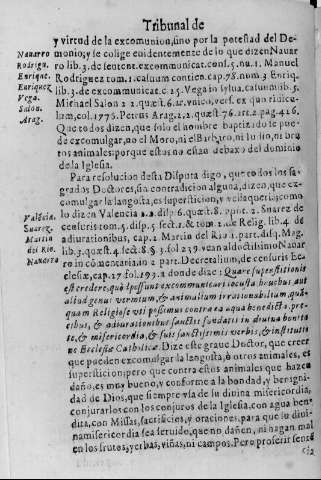 Tribunal de
y virtud de la excomunion, sino por la potestad del De-
monio; y se colige euidentemente de lo que dizen Nauar
ro lib. 3. de sentent. excommunicat. cons. 5. nu. 1. Manuel
Rodriguez tom. 1. casuum contien. cap. 78. num. 3. Enriq.
lib. 3. de excommunicat. c. 15. Vega in sylua casuum lib. 5.
Michael Salon 2 2. quæst. 6. vnico, vers. ex quo ridicu-
lum, col. 1776. Petrus Arag. 2.2. quæst. 76. art. 2. pag. 426.
Que todos dizen, que solo el hombre baptizado se pue-
de excomulgar, no el Moro, ni el Barbaro, ni lo sõ, ni bru
tos animales: porque estos no estan debaxo del dominio
de la Iglesia.
Nauarro
Rodrigu.
Enrique.
Enriquez
Vega.
Salon.
Arag.
Para resolucion desta Disputa digo, que todos los sa-
grados Doctores, sin contradicion alguna, dizen, que ex-
comulgar la langosta, es supersticion, y vellaqueria; como
lo dizen Valencia 2.2. disp. 6. quæst. 8. Suarez de
censuris tom. 5. disp. 5 sect. 1. & tom. 2. de Relig. lib. 4. de
adiurationibus, cap. 2. Martin del Rio 1. part. disq. Mag.
lib. 3. quæst. 4. sect. 8. §. 3. fol. 239. vean al doctissimo Nauar
ro in cõmentariis 2. part. Decretalium, de censuris Ec-
clesiæ, cap. 27. fol. 193. a donde dize: Quare superstitionis
est credere, quòd possunt excommunicari locusta bruchus aut
aliud genus vermium, & animalium irrationabilium, quã-
quam Religiosè vti possimus contra ea aqua benedicta, pre-
cibus, & adiurationibus sanctis fundatis in diuina bonita
te, & misericordia, & suis sanctissimis verbis, & institutio
ne Ecclesiæ Catholicæ. Dize este graue Doctor, que creer
que pueden excomulgar la langosta, ò otros animales, es
supersticion; pero que contra estos animales que hazen
daño, es muy bueno, y conforme a la bondad, y benigni-
dad de Dios, que siempre vsa de su diuina misericordia,
conjurarlos con los conjuros de la Iglesia, con agua ben-
dita, con Missas, sacrificios, y oraciones, para que su diui-
na misericordia sea seruido, que no dañen, ni hagan mal
en los frutos, yerbas, viñas, ni campos. Pero proferir senẽ
Valẽcia.
Suarez.
Martin
del Rio.
Nauarro